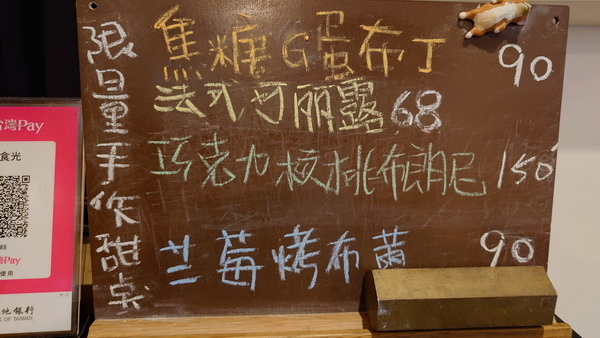 限量手作甜点
焦糖G蛋布丁 90
法式可丽露 68
巧克力核桃布朗尼 150
兰莓烤布蕾 90
台灣Pay
食光
Pay
使用
地銀行
OF TAIWAN